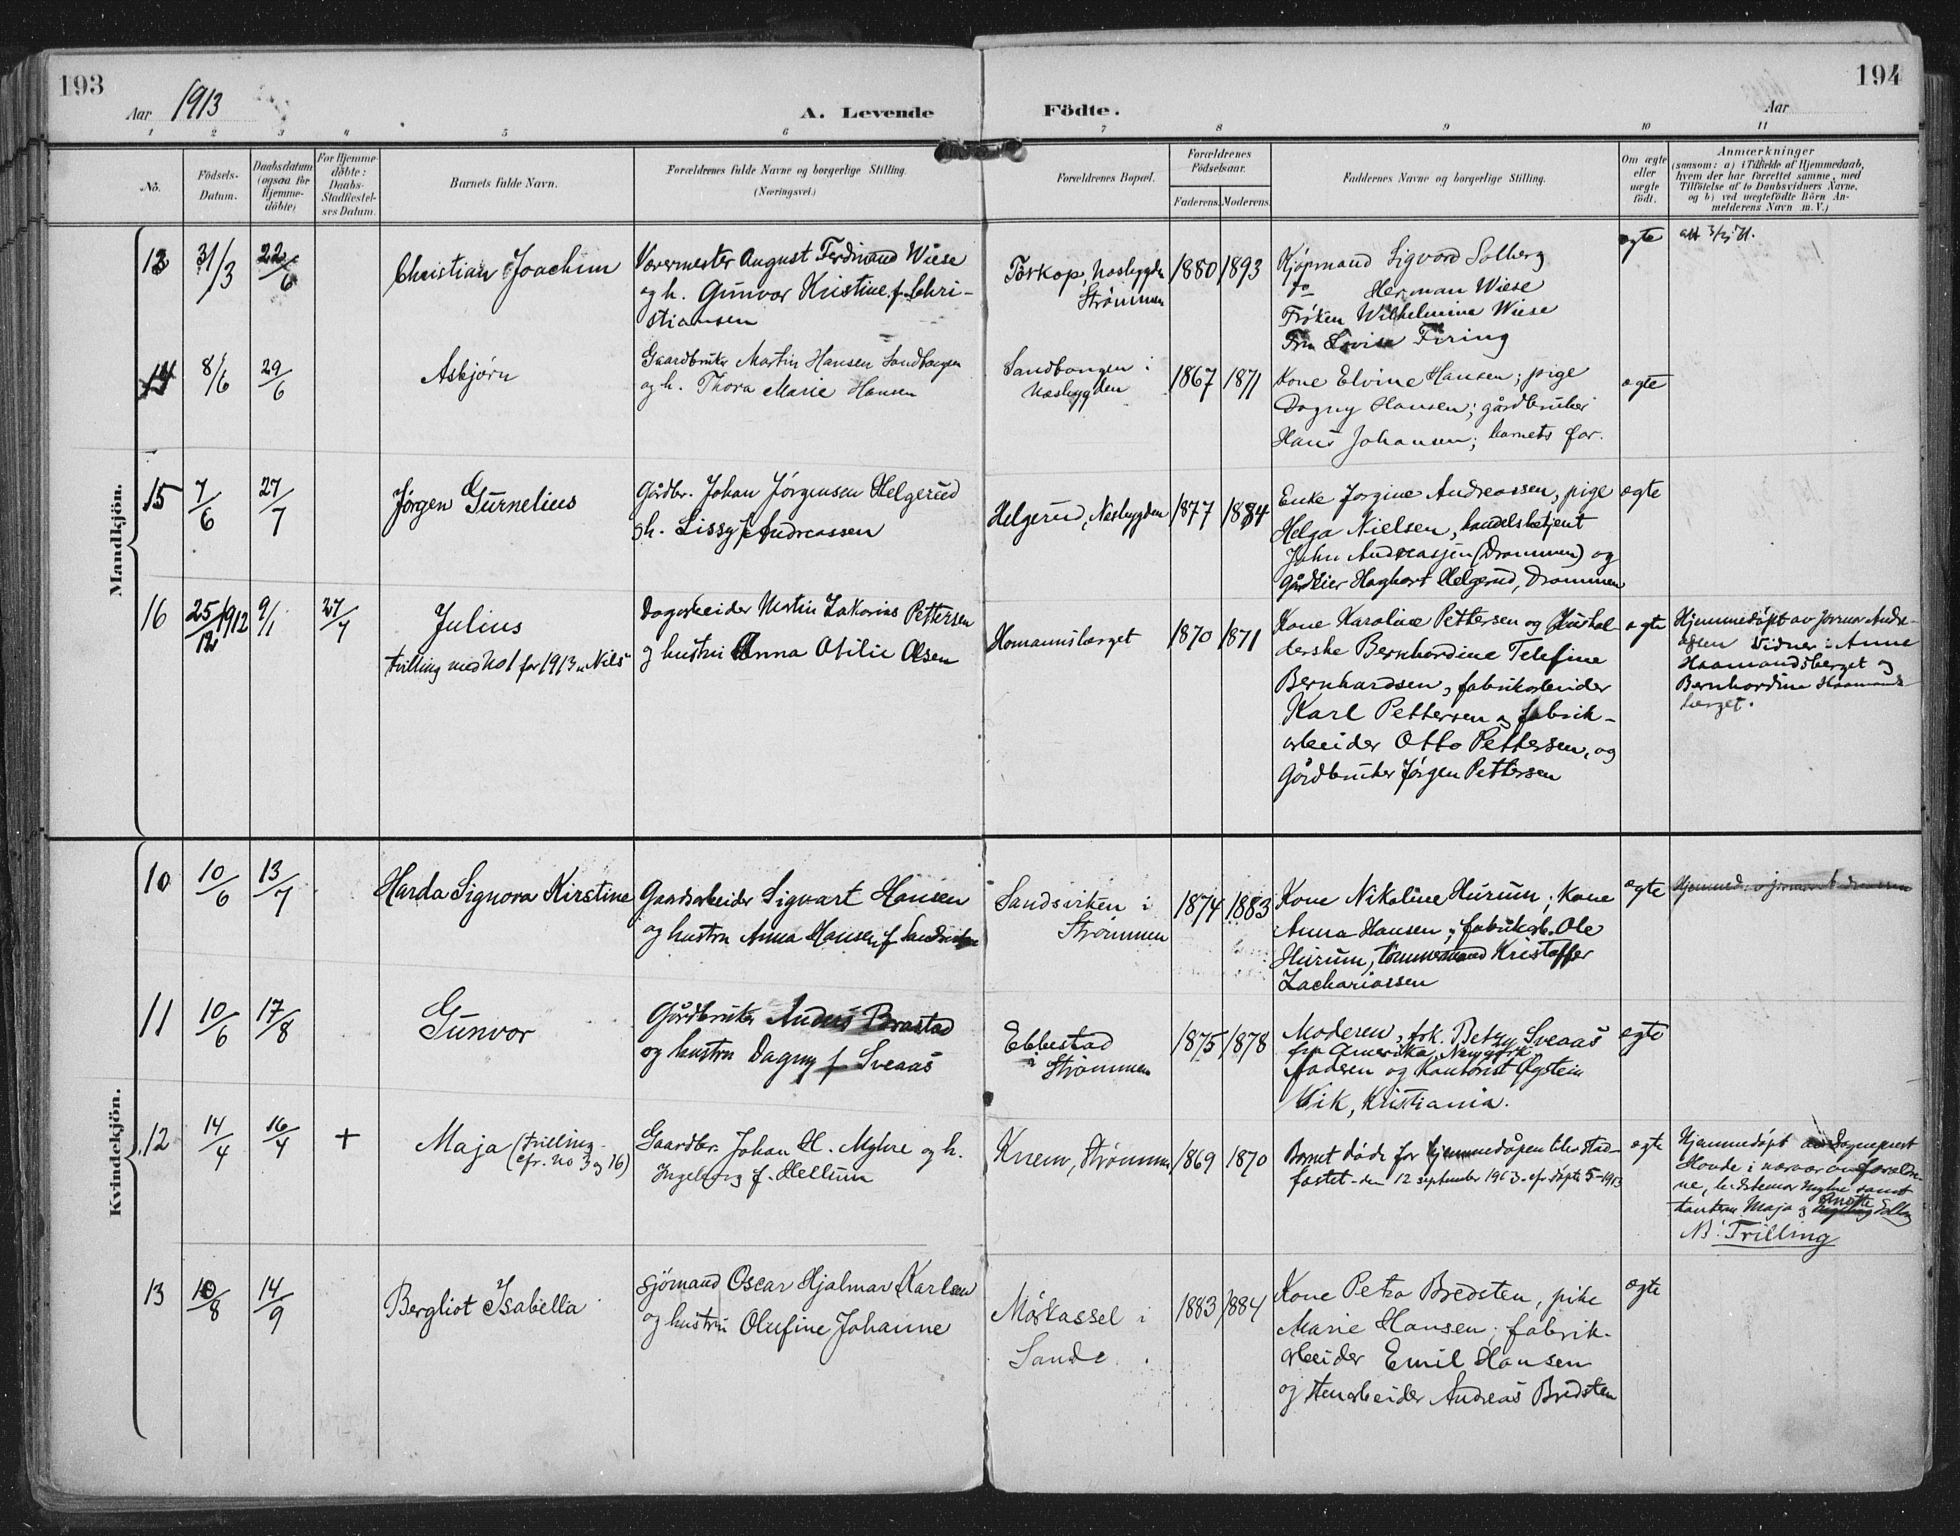 193
194
Aar 1913
A. Levende Födte.
Aar
1 2 3 4 5 6 7 8 9 10 11
No.
Födsels-Datum.
Daabsdatum (ogsaa for Hjemme-döbte)
For Hjemme-döbte: Daabs-Stadfæstel-ses Datum.
Barnets fulde Navn.
Forældrenes fulde Navne og borgerlige Stilling.
(Næringsvei.)
Forældrenes Bopæl.
Forældrenes Födselsaar.
Faderens. Moderens.
Faddernes Navne og borgerlige Stilling.
Om ægte eller uægte födt.
Anmærkninger
(saasom: a) i Tilfælde af Hjemmedaab,
hvem der har forrettet samme, med
Tilföielse af to Daabsvidners Navne,
og b) ved uægtefödte Börn An-
melderens Navn m. V.)
Mandkjön.
13 31/3 22/6 Christian Joachim
August Ferdinand Wiese
og h. Gunvor Kristine f. Chri-
stiansen
Torkop, Nesbygden
Strømmen
1880 1893
Kjøpmand Sigvard Solberg
do Herman Wiese
Frøken Wilhelmine Wiese
Fru Lovise Firing
egte
14 8/6 29/6 Asbjørn
Gaardbruker Martin Hansen Sandbogen
og h. Thora Marie Hansen
Sandbongen i
Nesbygden
1867 1871
Kone Elvine Hansen; pige
Dagny Hansen; gårdbruker
Hans Johansen; barnets far.
egte
15 7/6 27/7 Jørgen Gurnelius
Gårdbr. Johan Jørgensen Helgerud
g h. Lissy f. Andreassen
Helgerud, Nesbygden
1877 1884
Enke Jorgine Andreassen, pige
Helga Nielsen, handelsbetjent
John Andreassen (Drammen) og
Hagbart Helgerud, Drammen
egte
16 25/12 1912 9/1 27/7 Julius
tvilling med No 1 for 1913 Nils
Dagarbeider Martin Zakarias Pettersen
g hustru Anna Otilie Olsen
Homannsberget
1870 1871
Kone Karoline Pettersen og Hushol-
derske Bernhardine Telefine
Bernhardsen, fabrikarbeider
Karl Pettersen og fabrik-
arbeider Otto Pettersen, og
Gårdbruker Jørgen Pettersen
egte
Hjemmedøpt av jormor Andre-
asen Vidner: Anne
Haamandsberget og
Bernhardine Haamands-
berget.
Kvindekjön.
10 10/6 13/7 Harda Signora Kirstine
Gaardarbeider Sigvart Hansen
og hustru Anna Hansen f.
Sandsvirken i
Strømmen
1874 1883
Kone Nikoline Hurum; Kone
Anna Hansen; fabrikarb. Ole
Hurum, tømmermand Kristoffer
Zachariassen
egte
11 10/6 17/8 Gunvor
Gårdbruker Anders Brastad
og hustru Dagny f. Sveaas
Ebbestad
i Strømmen
1875 1878
Moderen, frk. Betzy Sveaas
fru Amerika, Newyork
Aadsen og Kontorist Øystein
Vik, Kristiania.
egte
12 14/4 16/4 + Maja (trilling
cfr. no 3 og 16)
Gaardbr. Johan H. Myhre og h.
Ingeborg f. Hellum
Knem, Strømmen
1869 1870
Barnet døde før hjemmedåpen blev stad-
fæstet den 12 september 1913. cfr døpte 5-1913
egte
Hjemmedøpt av Sogneprest
Hovde i nærvær av foreldre-
ne, bedstemor Myhre samt
tanterne Maja og Anette
NB: Trilling
13 10/8 14/9 Bergliot Isabella
Sjømand Oscar Hjalmar Karlsen
og hustru Olufine Johanne
Mørkassel i
Sande
1883 1884
Kone Petra Bredsten, pike
Marie Hansen; fabrik-
arbeider Emil Hansen
og stenarbeider Andreas Bredsten
egte